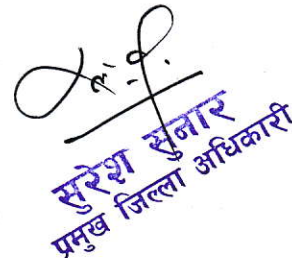 सुरेश सुनार
प्रमुख जिल्ला अधिकारी